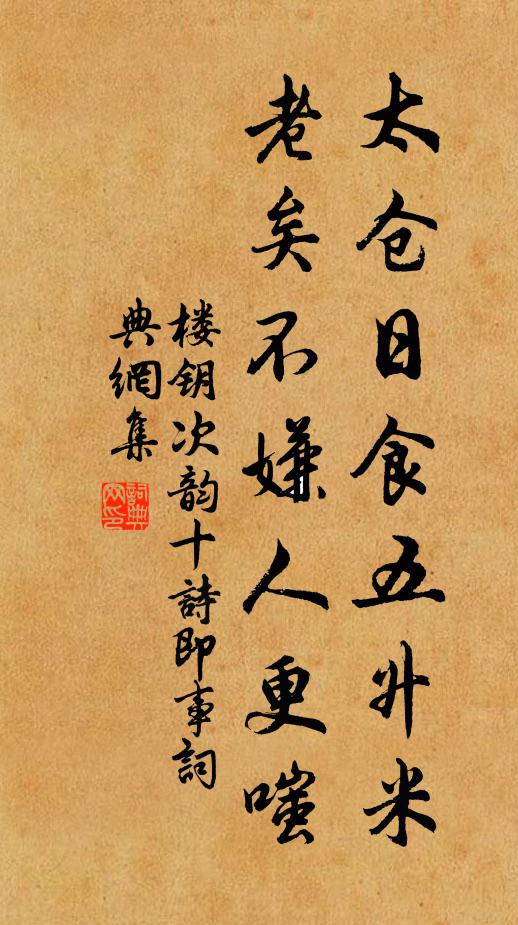 太仓日食五升米
老矣不嫌人更嗤
楼钥次韵十詩即事詞
典網集
詞典
网印